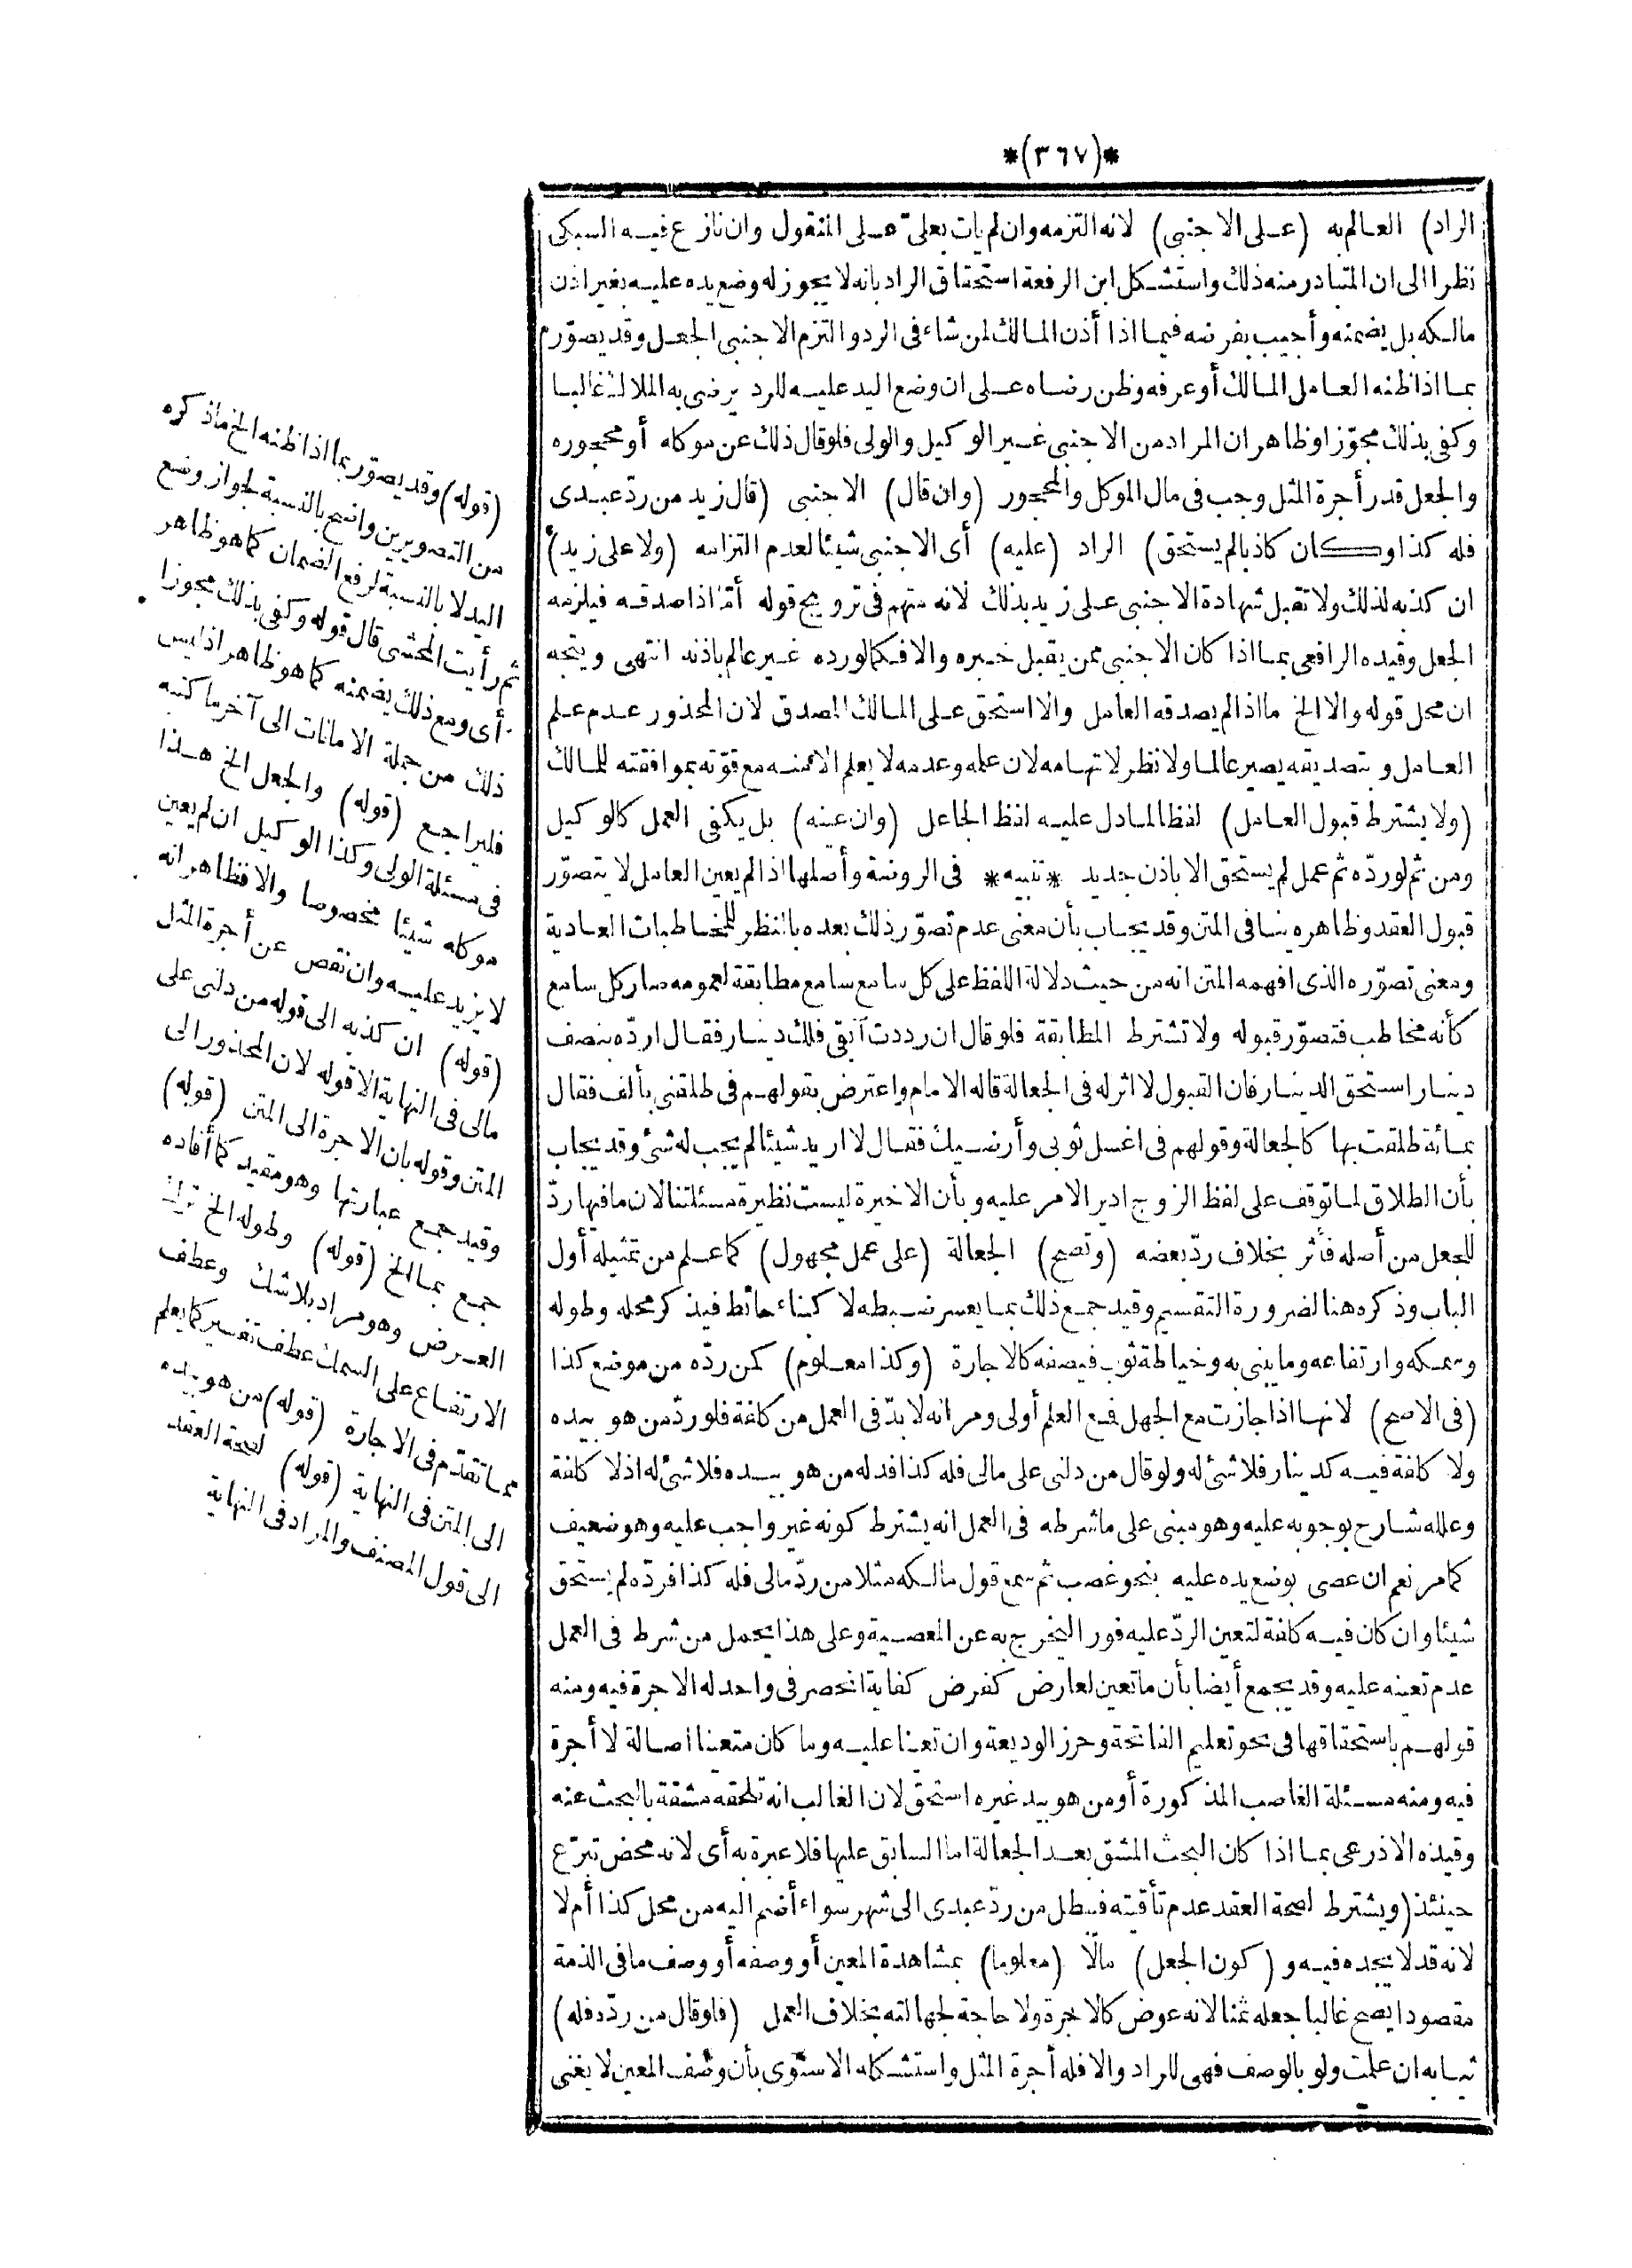 *(٣٦٧)*
الراد) العالم به (على الاجنبى) لانه التزمه وان لم يات بعلىّ على المنقول وان نازع فيه السبكى
نظرا الى ان المتبادر منه ذلك واستشكل ابن الرفعة استحقاق الراد بانه لا يجوز له وضع يده عليه بغير اذن
مالكه بل يضمنه وأجيب بفرضه فيما اذا أذن المالك لمن شاء فى الرد والتزم الاجنبى الجعل وقد يصوّر
بما اذا ظنه العامل المالك أو عرفه وظن رضاه على ان وضع اليد عليه للرد يرضى به الملاك غالبا
وكفى بذلك مجوّزا وظاهر ان المراد من الاجنبى غير الوكيل والولى فلو قال ذلك عن موكله أو محجوره
والجعل قدر أجرة المثل وجب فى مال الموكل والمحجور (وان قال) الاجنبى (قال زيد من ردّ عبدى
فله كذا وكان كاذبا لم يستحق) الراد (عليه) أى الاجنبى شيئا لعدم التزامه (ولا على زيد)
ان كذبه لذلك ولا تقبل شهادة الاجنبى على زيد بذلك لانه متهم فى ترويج قوله أمّا اذا صدقه فيلزمه
الجعل وقيده الرافعى بما اذا كان الاجنبى ممن يقبل خبره والا فكما لو رده غير عالم باذنه انتهى ويتجه
ان محل قوله والا الخ ما اذا لم يصدقه العامل والا استحق على المالك المصدق لان المحذور عدم علم
العامل وبتصديقه يصير عالما ولا نظر لاتهامه لان علمه وعدمه لا يعلم الا منه مع قوّته بموافقته للمالك
(ولا يشترط قبول العامل) لفظا لما دل عليه لفظ الجاعل (وان عينه) بل يكفى العمل كالوكيل
ومن ثم لو ردّه ثم عمل لم يستحق الا باذن جديد *تنبيه* فى الروضة وأصلها اذا لم يعين العامل لا يتصوّر
قبول العقد وظاهره ينافى المتن وقد يجاب بأن معنى عدم تصوّر ذلك بعده بالنظر للمخاطبات العادية
ومعنى تصوّره الذى افهمه المتن انه من حيث دلالة اللفظ على كل سامع سامع مطابقة لعمومه صار كل سامع
كأنه مخاطب فتصوّر قبوله ولا تشترط المطابقة فلو قال ان رددت آبقى فلك دينار فقال اردّه بنصف
دينار استحق الدينار فان القبول لا اثر له فى الجعالة قاله الامام واعترض بقولهم فى طلقنى بألف فقال
بمائة طلقت بها كالجعالة وقولهم فى اغسل ثوبى وأرضيك فقال لا اريد شيئا لم يجب له شئ وقد يجاب
بأن الطلاق لما توقف على لفظ الزوج ادير الامر عليه وبأن الاخيرة ليست نظيرة مسئلتنا لان ما فيها ردّ
للجعل من أصله فأثر بخلاف ردّ بعضه (وتصح) الجعالة (على عمل مجهول) كما علم من تمثيله أول
الباب وذكره هنا لضرورة التقسيم وقيد جمع ذلك بما يعسر ضبطه لا كبناء حائط فيذكر محله وطوله
وسمكه وارتفاعه وما يبنى به وخياطة ثوب فيصفه كالاجارة (وكذا معلوم) كمن ردّه من موضع كذا
(فى الاصح) لانها اذا جازت مع الجهل فمع العلم أولى ومر انه لا بدّ فى العمل من كلفة فلو ردّ من هو بيده
ولا كلفة فيه كدينار فلا شئ له ولو قال من دلنى على مالى فله كذا فدله من هو بيده فلا شئ له اذ لا كلفة
وعلله شارح بوجوبه عليه وهو مبنى على ما شرطه فى العمل انه يشترط كونه غير واجب عليه وهو ضعيف
كما مر نعم ان عصى بوضع يده عليه بنحو غصب ثم سمع قول مالكه مثلا من ردّ مالى فله كذا فردّه لم يستحق
شيئا وان كان فيه كلفة لتعين الردّ عليه فورا ليخرج به عن المعصية وعلى هذا يحمل من شرط فى العمل
عدم تعينه عليه وقد يجمع أيضا بأن ما تعين لعارض كفرض كفاية انحصر فى واحد له الاجرة فيه ومنه
قولهم باستحقاقها فى نحو تعليم الفاتحة وحرز الوديعة وان تعينا عليه وما كان متعينا اصالة لا أجرة
فيه ومنه مسئلة الغاصب المذكورة أو من هو بيد غيره استحق لان الغالب انه تلحقه مشقة بالبحث عنه
وقيده الاذرعى بما اذا كان البحث المشق بعد الجعالة اما السابق عليها فلا عبرة به أى لانه محض تبرّع
حينئذ (ويشترط لصحة العقد عدم تأقيته فيبطل من ردّ عبدى الى شهر سواء أضم اليه من محل كذا أم لا
لانه قد لا يجده فيه و (كون الجعل) مالا (معلوما) بمشاهدة المعين أو وصفه أو وصف ما فى الذمة
مقصودا يصح غالبا جعله ثمنا لانه عوض كالاجرة ولا حاجة لجهالته بخلاف العمل (فلو قال من ردّه فله)
ثيابه ان علمت ولو بالوصف فهى للراد والا فله أجرة المثل واستشكله الاسنوى بأن وصف المعين لا يغنى
(قوله) وقد يصوّر بما اذا ظنه الخ ما ذكره
من التصويرين واضح بالنسبة لجواز وضع
اليد لا بالنسبة لرفع الضمان كما هو ظاهر
ثم رأيت المحشى قال قوله وكفى بذلك مجوزا
أى ومع ذلك يضمنه كما هو ظاهر اذ ليس
ذلك من جملة الامانات الى آخر ما كتبه
فليراجع (قوله) والجعل الخ هذا
فى مسئلة الولى وكذا الوكيل ان لم يعين
موكله شيئا مخصوصا والا فظاهر انه
لا يزيد عليه وان نقص عن أجرة المثل
(قوله) ان كذبه الى قوله من دلنى على
مالى فى النهاية الا قوله لان المحذور الى
المتن وقوله بان الاجرة الى المتن (قوله)
وقيد جمع عبارتها وهو مقيد كما أفاده
جمع بما الخ (قوله) وطوله الخ ترك
العرض وهو مراد بلا شك وعطف
الارتفاع على السمك عطف تفسير كما يعلم
مما تقدم فى الاجارة (قوله) من هو بيده
الى المتن فى النهاية (قوله) لصحة العقد
الى قول المصنف والمراد فى النهاية